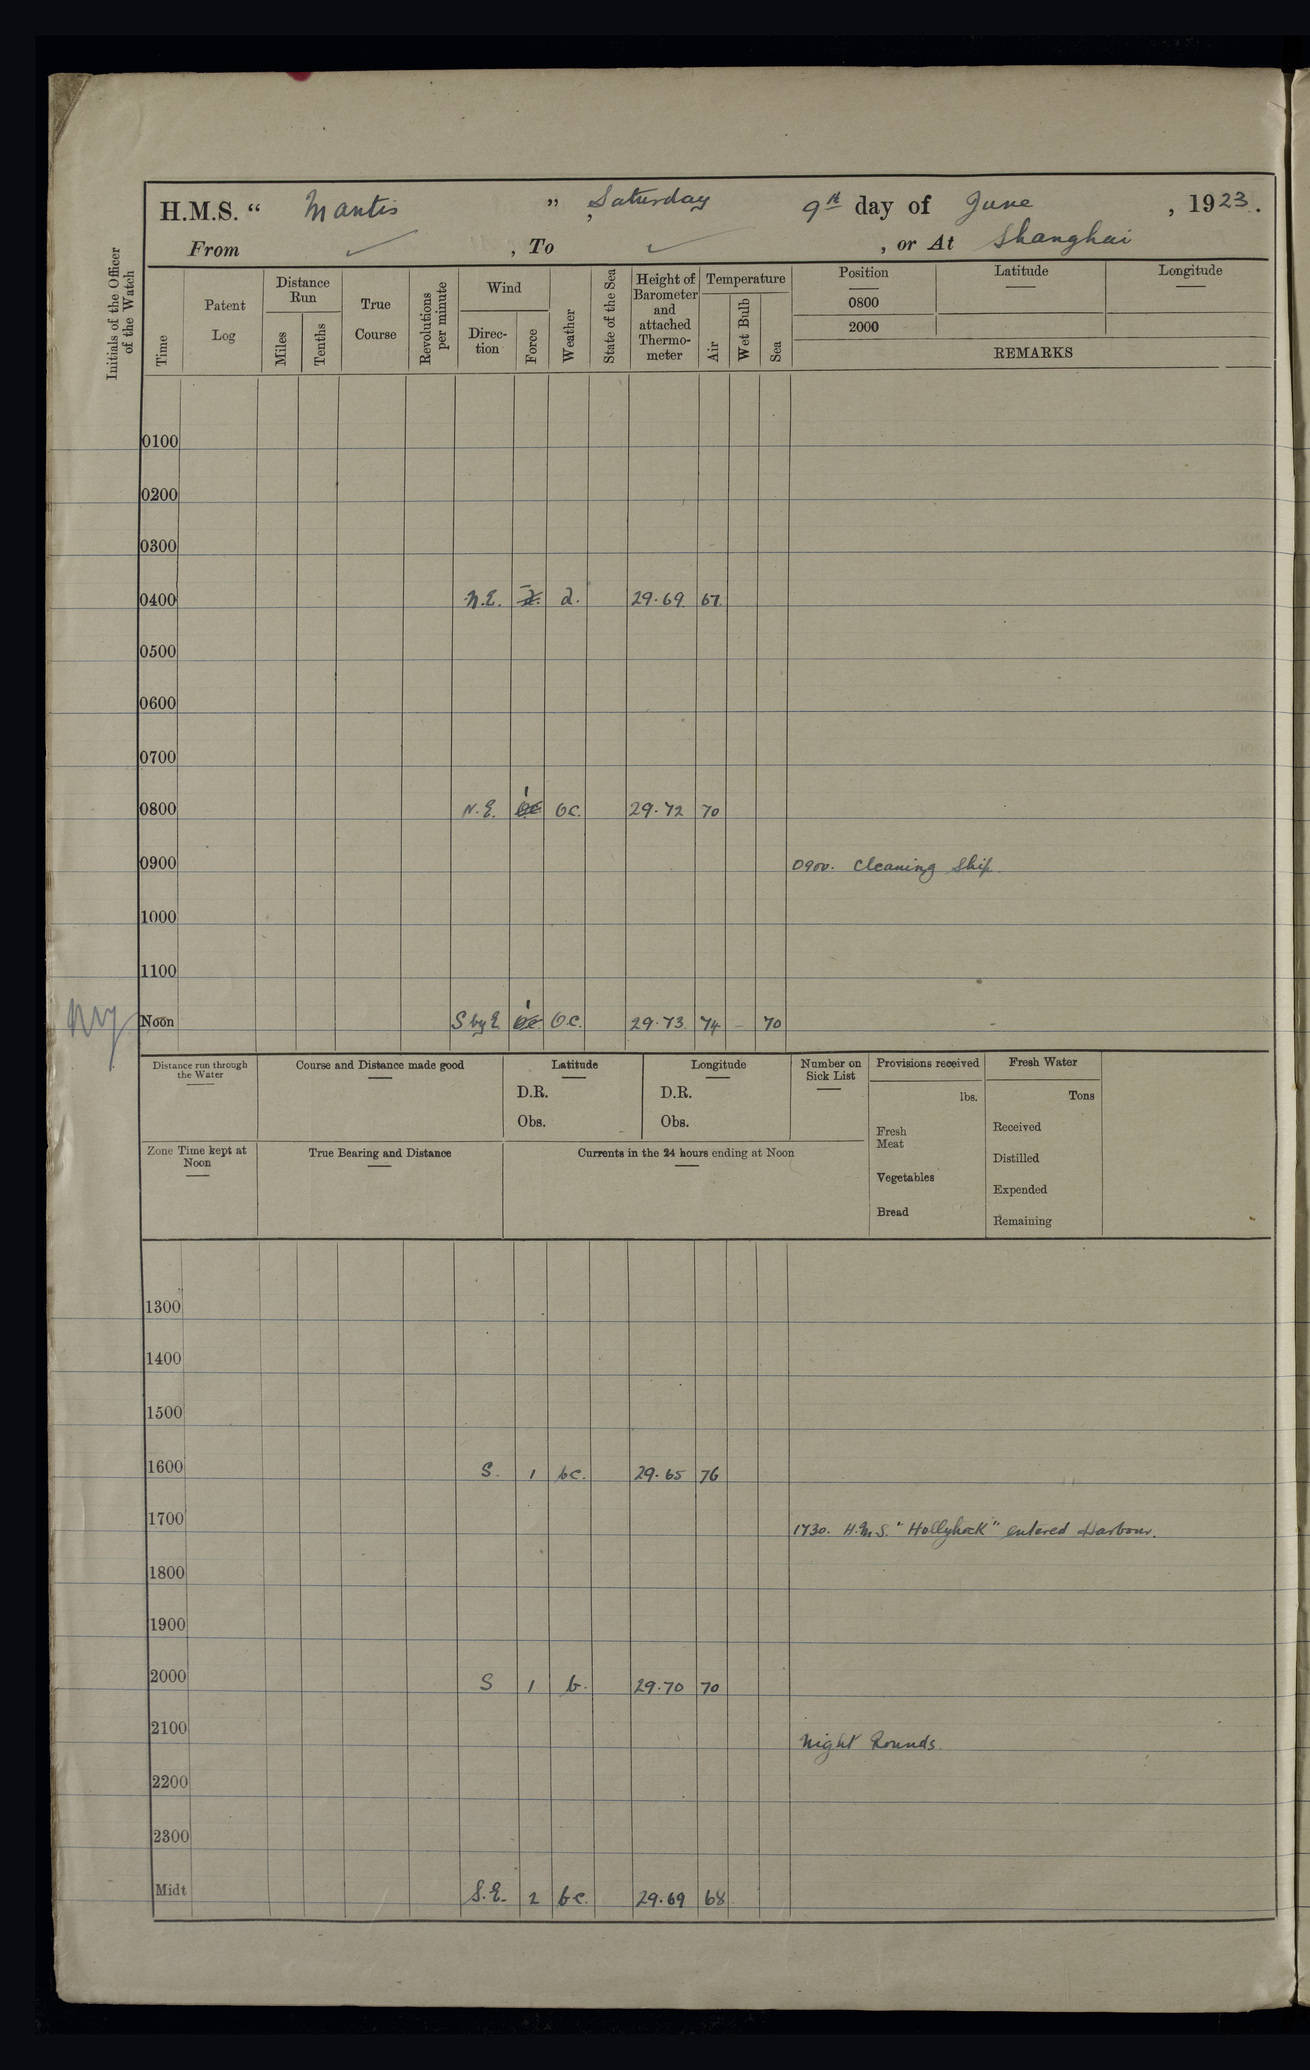 H.M.S. “ Mantis ” , Saturday 9th day of June , 1923.
From ✓ , To ✓ , or At Shanghai
Initials of the Officer of the Watch
Time
Patent Log
Distance Run
Miles
Tenths
True Course
Revolutions per minute
Wind
Direc-tion
Force
Weather
State of the Sea
Height of Barometer and attached Thermo-meter
Temperature
Air
Wet Bulb
Sea
Position
0800
2000
Latitude
Longitude
REMARKS
0100
0200
0300
0400 N.E. d. 29.69 67
0500
0600
0700
0800 N.E. 1 oc. 29.72 70
0900 0900. Cleaning Ship.
1000
1100
Noon S by E 1 o.c. 29.73 74 – 70
Distance run through the Water
Course and Distance made good
Latitude
D.R.
Obs.
Longitude
D.R.
Obs.
Number on Sick List
Provisions received
lbs.
Fresh Meat
Vegetables
Bread
Fresh Water
Tons
Received
Distilled
Expended
Remaining
Zone Time kept at Noon
True Bearing and Distance
Currents in the 24 hours ending at Noon
1300
1400
1500
1600 S. 1 bc. 29.65 76
1700 1730. H.M.S. "Hollyhock" entered Harbour.
1800
1900
2000 S 1 b. 29.70 70
2100 Night Rounds.
2200
2300
Midt S.E. 2 bc. 29.69 68